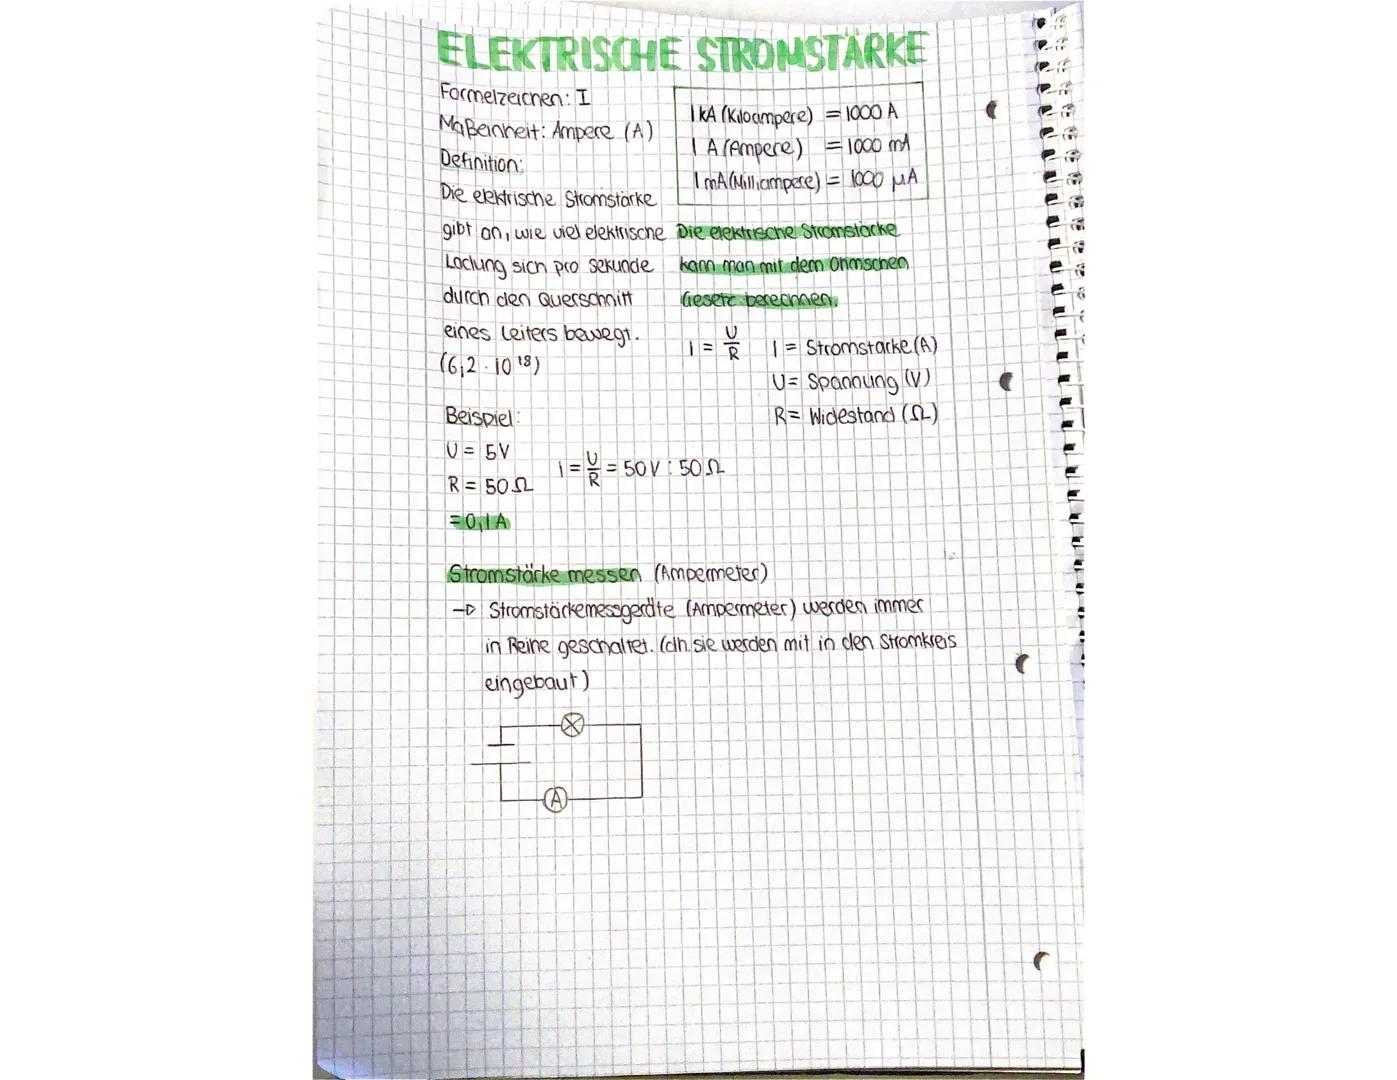 ELEKTRISCHE STROMSTÄRKE
Formelzeichen: I
Maßeinheit: Ampere (A)
Definition:
Die elektrische Stromstärke
gibt an, wie viel elektrische
Ladung sich pro Sekunde
durch den Querschnitt
eines Leiters bewegt.
(6,2 · 10¹⁸)
1 kA (Kiloampere) = 1000 A
1 A (Ampere) = 1000 mA
1 mA (Milliampere) = 1000 µA
Die elektrische Stromstärke
kann man mit dem Ohmschen
Gesetz berechnen.
I = U/R
I = Stromstärke (A)
U = Spannung (V)
R = Widestand (Ω)
Beispiel:
U = 5V
R = 50 Ω
I = U/R = 50 V : 50 Ω
= 0,1 A
Stromstärke messen (Ampermeter)
→ Stromstärkemessgeräte (Ampermeter) werden immer
in Reihe geschaltet. (dh. sie werden mit in den Stromkreis
eingebaut)
A